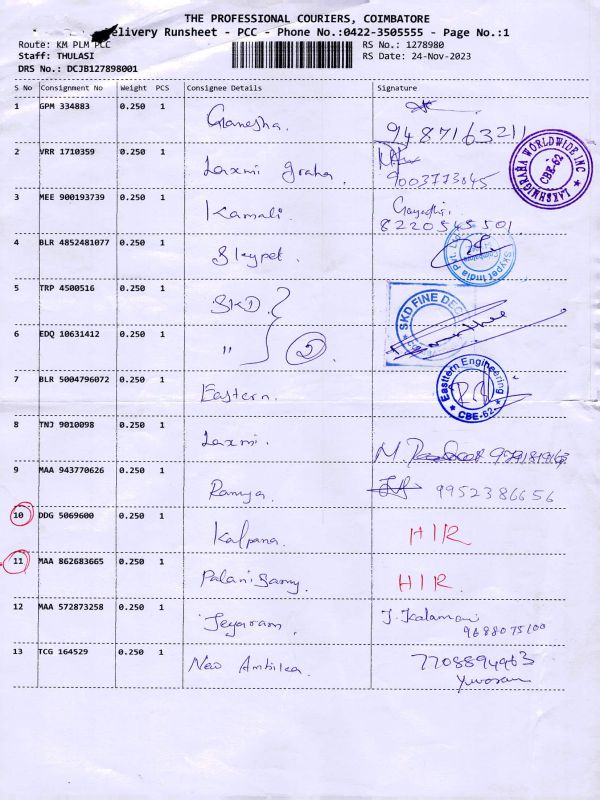 THE PROFESSIONAL COURIERS, COIMBATORE
Delivery Runsheet - PCC - Phone No.:0422-3505555 - Page No.:1
Route: KM PLM PLC
RS No.: 1278980
Staff: THULASI
RS Date: 24-Nov-2023
DRS No.: DCJB127898001
S No Consignment No Weight PCS Consignee Details Signature
1 GPM 334883 0.250 1 Ganesha. 9487163211
2 VRR 1710359 0.250 1 Laxmi graha. 9003773645
LAKSHMIGRAHA WORLDWIDE INC CBE-62
3 MEE 900193739 0.250 1 Kamali. Gayathri. 8220545501.
4 BLR 4852481077 0.250 1 Skypet. Skypet India Pvt. Ltd. Coimbatore
5 TRP 4500516 0.250 1 SKD SKD FINE
6 EDQ 10631412 0.250 1 " 2
7 BLR 5004796072 0.250 1 Eastern. Easttern Engineering CBE-62.
8 TNJ 9010098 0.250 1 Laxmi.
9 MAA 943770626 0.250 1 Ramya. 9952386656
10 DDG 5069600 0.250 1 Kalpana. HIR
11 MAA 862683665 0.250 1 Palanisamy. HIR.
12 MAA 572873258 0.250 1 Jeyaram. J. Kalamani
9688075100
13 TCG 164529 0.250 1 New Ambikea. 7708894963
Yuvosan